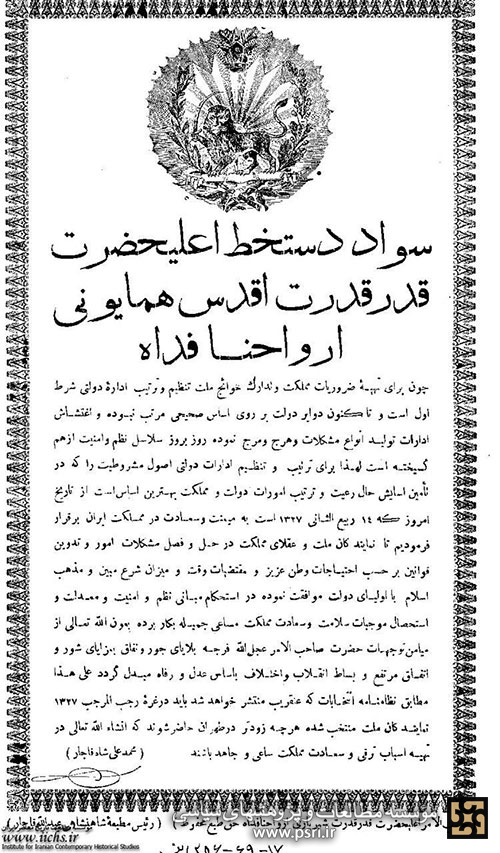 سواد دستخط اعلیحضرت
قدر قدرت اقدس همایونی
ارواحنا فداه
چون برای تهیهٔ ضروریات مملکت وتدارك حوائج ملت تنظیم وترتیب ادارهٔ دولتی شرط
اول است و تاکنون دوایر دولت بر روی اساس صحیحی مرتب نبوده و اغتشاش
ادارات تولید انواع مشکلات وهرج ومرج نموده روز بروز سلاسل نظم وامنیت ازهم
گسیخته است لهذا برای ترتیب و تنظیم ادارات دولتی اصول مشروطیت را که در
تأمین اسایش حال رعیت و ترتیب امورات دولت و مملکت بهترین اساس است از تاریخ
امروز که ١٤ ربیع الثانی ١٣٢٧ است به میمنت وسعادت در مملکت ایران برقرار
فرمودیم تا نمایندکان ملت و عقلای مملکت در حل و فصل مشکلات امور و تدوین
قوانین بر حسب احتیاجات وطن عزیز و مقتضیات وقت و میزان شرع مبین و مذهب
اسلام با اولیای دولت موافقت نموده در استحکام مبانی نظم و امنیت و معدلت و
استحصال موجبات سلامت وسعادت مملکت مساعی جمیله بکار برده بعون الله تعالی از
میامن توجهات حضرت صاحب الامر عجل الله فرجه بلایای جور ونفاق بمزایای شور و
اتفاق مرتفع و بساط انقلاب واختلاف باساس عدل و رفاه مبدل گردد علی هذا
مطابق نظامنامه انتخابات که عنقریب منتشر خواهد شد باید درغرهٔ رجب المرجب ١٣٢٧
نمایندکان ملت منتخب شده هرچه زودتر درطهران حاضر شوند که انشاء الله تعالی در
تهیه اسباب ترقی و سعادت مملکت ساعی و جاهد باشند ( محمد علی شاه قاجار )
الامر اعلیحضرت قدر قدرت شهریاری ارواحنا فداه حق طبع محفوظ ( رئیس مطبعهٔ شاهنشاهی عبدالله قاجار )
موسسه مطالعات و پژوهشهای سیاسی
www.psri.ir
www.iichs.ir
Institute for Iranian Contemporary Historical Studies